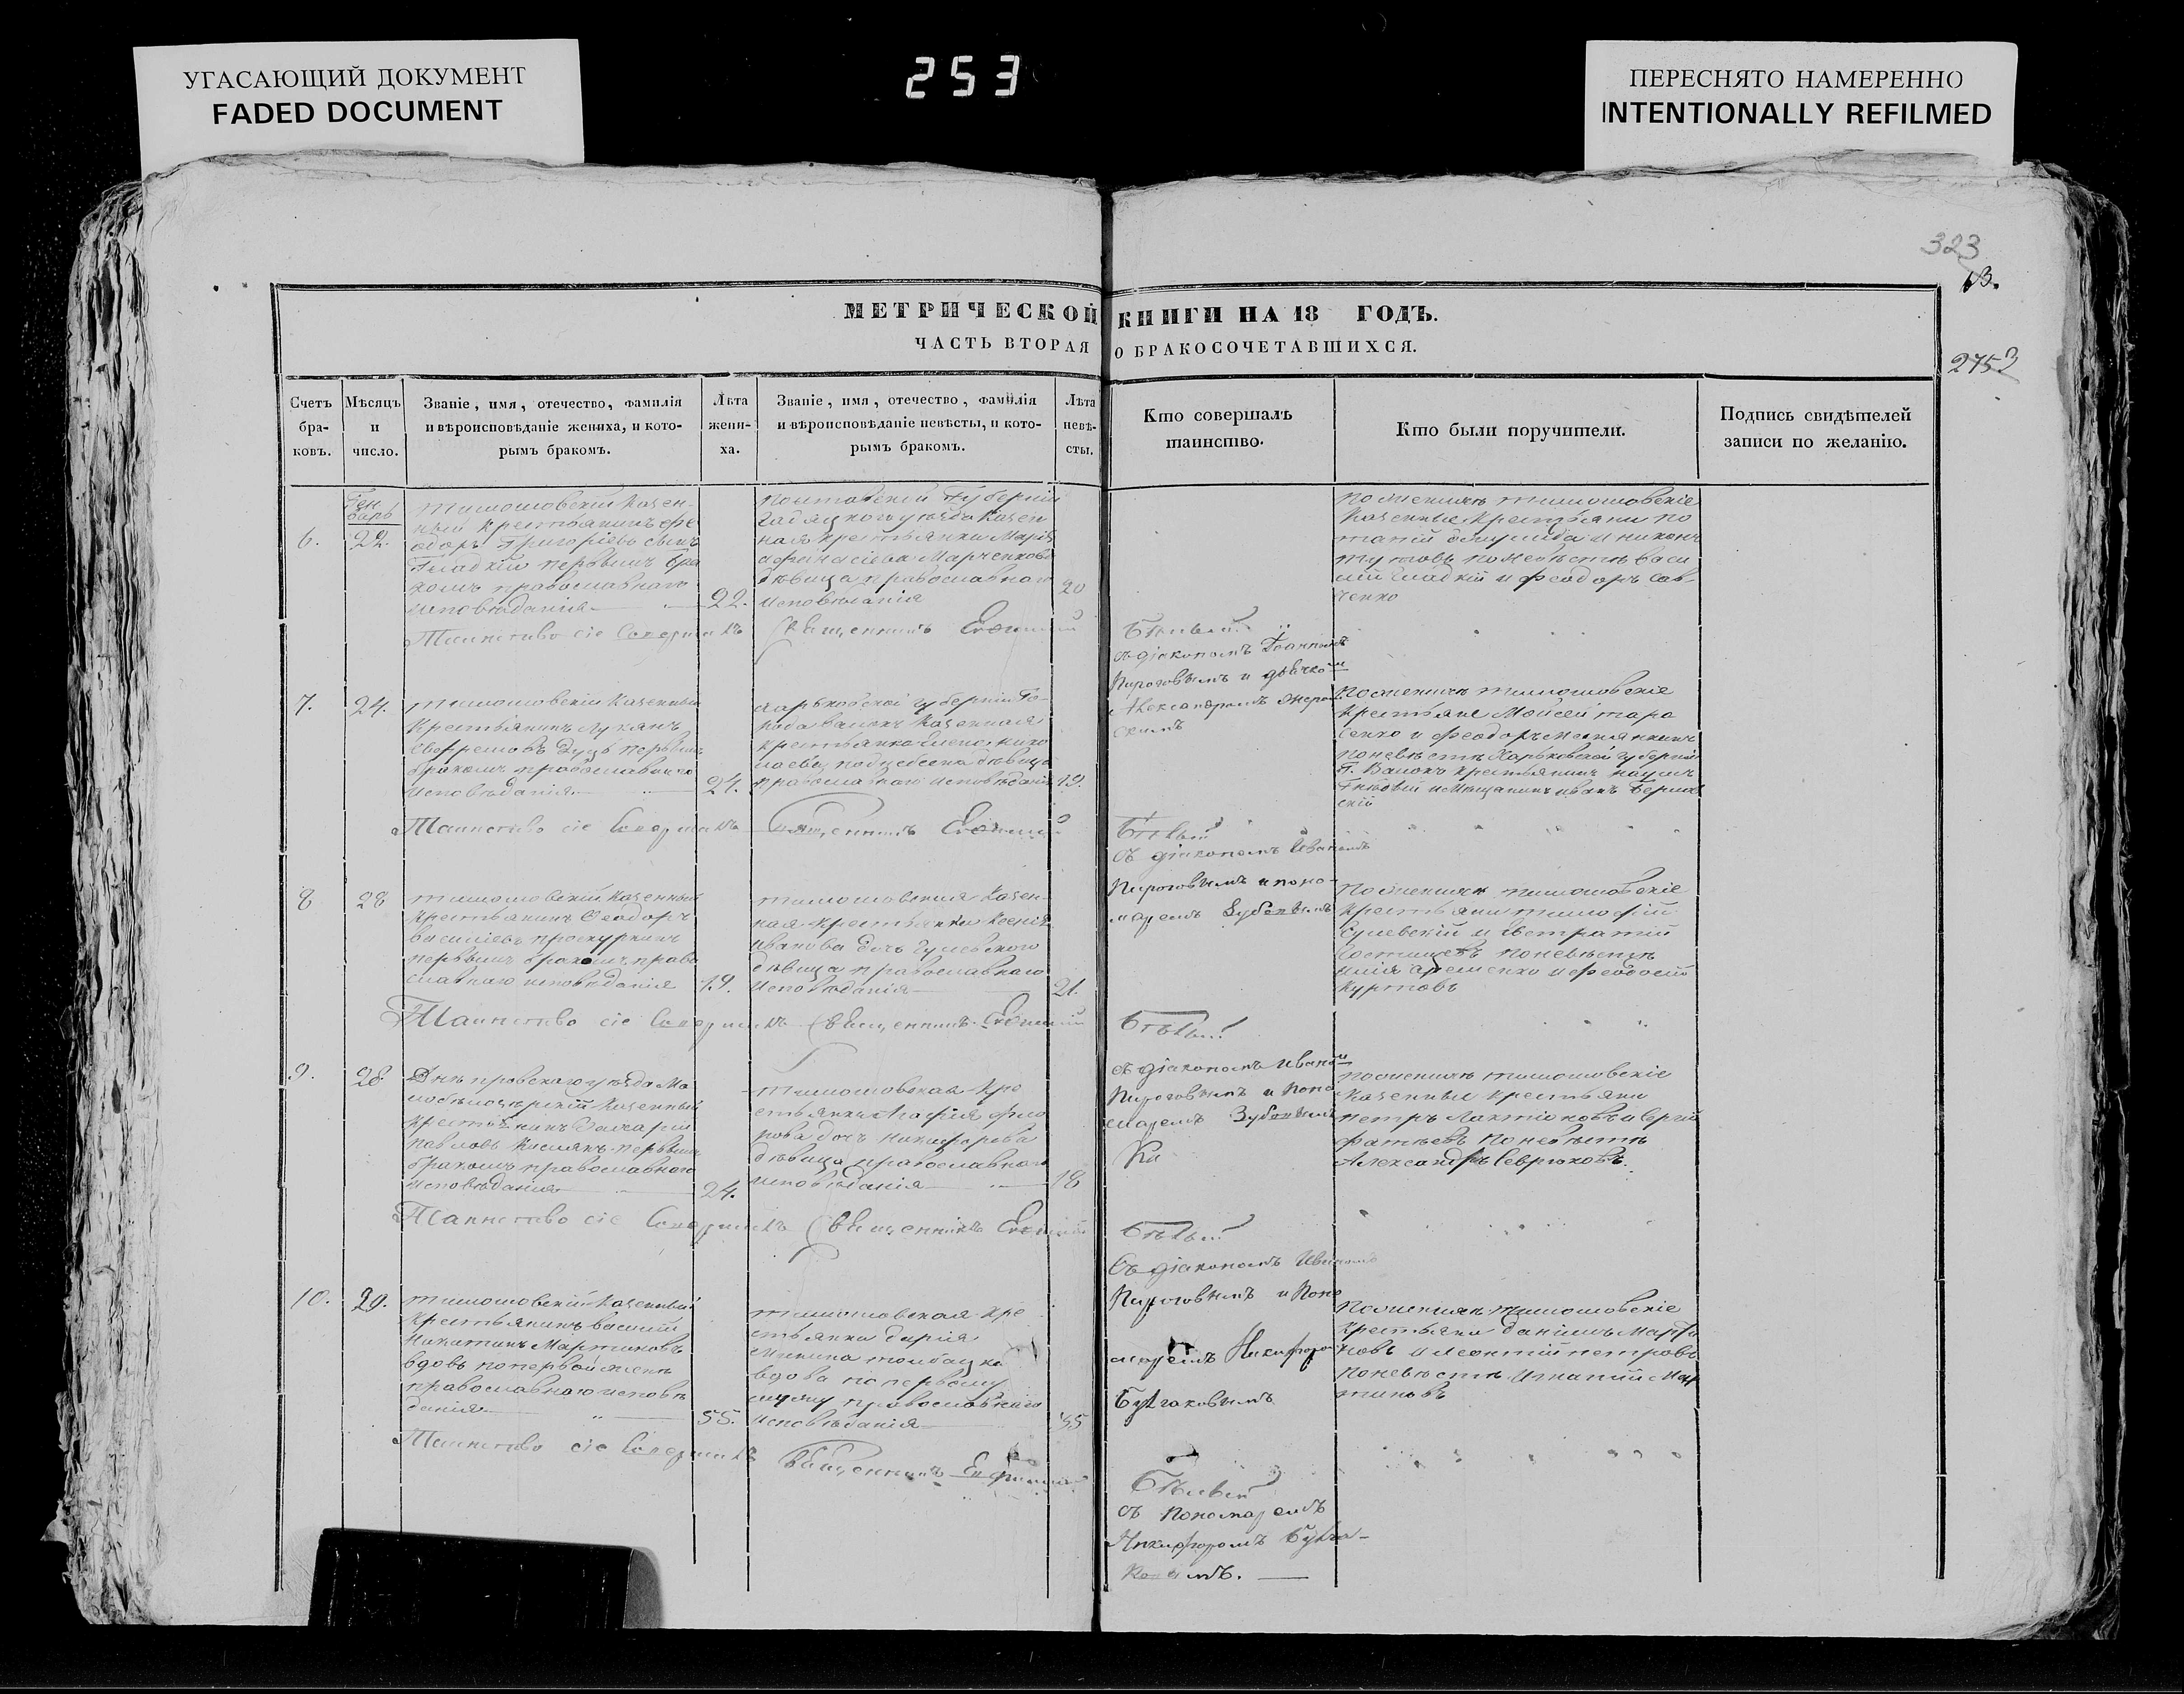 УГАСАЮЩИЙ ДОКУМЕНТ
FADED DOCUMENT
253
ПЕРЕСНЯТО НАМЕРЕННО
INTENTIONALLY REFILMED
323
13.
2753
МЕТРИЧЕСКОЙ КНИГИ НА 18 ГОДЪ.
ЧАСТЬ ВТОРАЯ О БРАКОСОЧЕТАВШИХСЯ.
Счетъ
бра-
ковъ.
Мѣсяцъ
и
число.
Званіе, имя, отечество, фамилія
и вѣроисповѣданіе жениха, и кото-
рымъ бракомъ.
Лѣта
жени-
ха.
Званіе, имя, отечество, фамилія
и вѣроисповѣданіе невѣсты, и кото-
рымъ бракомъ.
Лѣта
невѣ-
сты.
Кто совершалъ
таинство.
Кто были поручители.
Подпись свидѣтелей
записи по желанію.
6.
Ген
варь
22.
Тимошовскій Казен-
ный крестьянинъ Фе
одоръ Григоріевъ сынъ
Гладкій первымъ бра
комъ православнаго
исповѣданія
22.
Полтавской Губерніи
Гадяцкого уѣзда Казен
ная крестьянка Марія
Афанасіева Марченкова
дѣвица православнаго
исповѣданія
20
Таинство сіе Совершилъ Священникъ Евфимій
Бѣлый
съ діакономъ Іоанномъ
Пироговымъ и дьячкомъ
Александромъ
По женихѣ тимошовскіе
Казенные Крестьяни По
тапій и никонъ
тутовъ по невѣстѣ Васи
лій Гладкій и Феодоръ Сав-
ченко
7.
24.
Тимошовскій Казенный
Крестьянинъ Лукянъ
Евфремовъ Дуцъ первымъ
бракомъ православнаго
исповѣданія
24.
Харьковской губерніи Го-
рода Валокъ Казенная
крестьянка Елена Нико
лаева дѣвица
православнаго исповѣданія
19.
Таинство сіе Совершилъ Священникъ Евфимій
Бѣлый
съ діакономъ Иваномъ
Пироговымъ и поно-
маремъ Зубовымъ
По женихѣ тимошовскіе
крестьяне Мойсей Тара
сенко и Феодоръ
по невѣстѣ Харьковской губерніи
Г. Валокъ крестьянинъ Наумъ
и Мещанинъ Иванъ
скій
8
28
Тимошовскій Казенный
крестьянинъ Феодоръ
Василіевъ Проскурнинъ
первымъ бракомъ право
славнаго исповѣданія
19.
Тимошовская Казен-
ная крестьянка Ксенія
Иванова дочь Гулевского
дѣвица православнаго
исповѣданія
21.
Таинство сіе Совершилъ Священникъ Евфимій
Бѣлый
съ діакономъ Иваномъ
Пироговымъ и Поно
маремъ Зубовымъ
По женихѣ тимошовскіе
крестьяни Тимофій
Сулевскій и Евстратій
по невѣстѣ
и Феодосій
Куртовъ
9.
28.
Днѣпровскаго уѣзда Ма
лобѣлозерскій Казенный
крестьянинъ Захарій
Павловъ Кислякъ первымъ
бракомъ православнаго
исповѣданія
24.
Тимошовская кре
стьянка Агафія Фло
рова дочь Никифорова
дѣвица православнаго
исповѣданія
18
Таинство сіе Совершилъ Священникъ Евфимій
Бѣлый
Съ діакономъ Иваномъ
Пироговымъ и Поно
маремъ Никифоромъ
Булгаковымъ
По женихѣ тимошовскіе
Казенные крестьяни
Петръ Лактіоновъ и Сергій
Фатѣевъ по невѣстѣ
Александръ Севрюковъ.
10.
29.
Тимошовскій Казенный
Крестьянинъ Василій
Никитинъ Мартиновъ
вдовъ по первой женѣ
православнаго исповѣ
данія
55.
Тимошовская кре
стьянка Дарія
Минина
вдова по первому
мужу православнаго
исповѣданія
35
Таинство сіе Совершилъ Священникъ Евфимій
Бѣлый
съ Пономаремъ
Никифоромъ Булга-
ковымъ.
По женихѣ тимошовскіе
крестьяни Даніилъ Марти
новъ и Леонтій Петровъ
по невѣстѣ Игнатій Мар
тиновъ